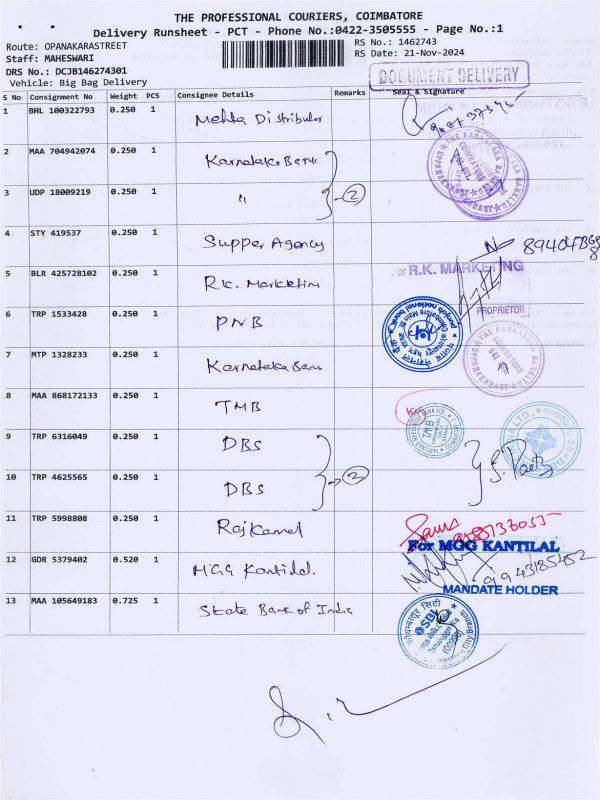 THE PROFESSIONAL COURIERS, COIMBATORE
Delivery Runsheet - PCT - Phone No.:0422-3505555 - Page No.:1
Route: OPANAKARASTREET
RS No.: 1462743
Staff: MAHESWARI
RS Date: 21-Nov-2024
DRS No.: DCJB146274301
Vehicle: Big Bag Delivery
DOCUMENT DELIVERY
S No Consignment No Weight PCS Consignee Details Remarks Seal & Signature
1 BHL 100322793 0.250 1 Mehta Distributor
2 MAA 704942074 0.250 1 Karnataka Bank
3 UDP 18009219 0.250 1 " 2
THE KARNATAKA BANK LTD. OPPANAKARAST COIMBATORE
4 STY 419537 0.250 1 Supper Agency
5 BLR 425728102 0.250 1 R.K. Marketing
for R.K. MARKETING
PROPRIETOR
6 TRP 1533428 0.250 1 PNB
punjab national bank
7 MTP 1328233 0.250 1 Karnataka Bank
8 MAA 868172133 0.250 1 TMB
TMB
9 TRP 6316049 0.250 1 DBS
10 TRP 4625565 0.250 1 DBS 2
11 TRP 5998808 0.250 1 Rajkamal
12 GDR 5379402 0.520 1 MGG Kantilal.
For MGG KANTILAL
9943185452
MANDATE HOLDER
13 MAA 105649183 0.725 1 State Bank of India
SBI